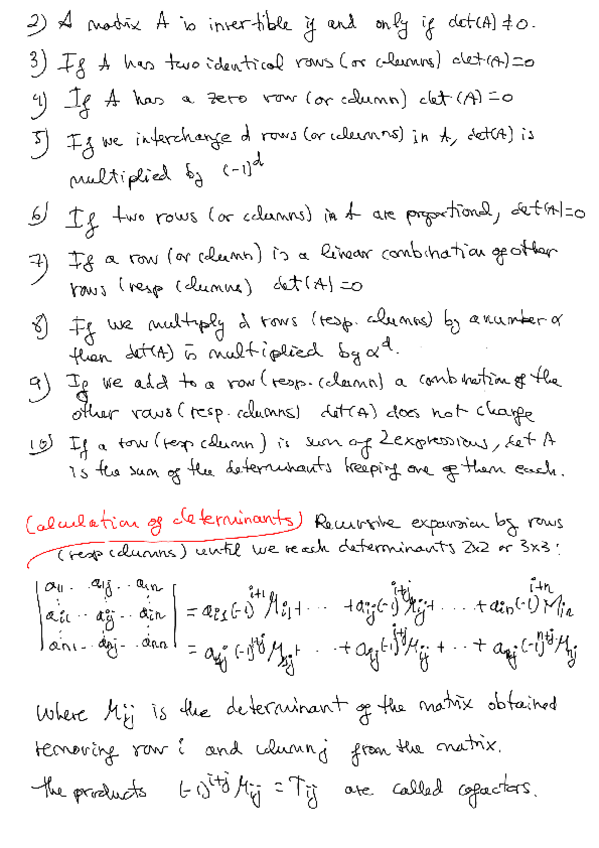 2) A matrix A is invertible if and only if det(A) ≠ 0.
3) If A has two identical rows (or columns) det(A)=0
4) If A has a zero row (or column) det(A)=0
5) If we interchange d rows (or columns) in A, det(A) is
multiplied by (-1)^d
6) If two rows (or columns) in A are proportional, det(A)=0
7) If a row (or column) is a linear combination of other
rows (resp columns) det(A)=0
8) If we multiply d rows (resp. columns) by a number α
then det(A) is multiplied by α^d.
9) If we add to a row (resp. column) a combination of the
other rows (resp. columns) det(A) does not change
10) If a row (resp column) is sum of 2 expressions, det A
is the sum of the determinants keeping one of them each.
Calculation of determinants) Recursive expansion by rows
(resp columns) until we reach determinants 2x2 or 3x3:
|a11 .. a1j .. a1n|
|ai1 .. aij .. ain| = ai1(-1)^{i+1} Mi1 + ... + aij(-1)^{i+j} Mij + ... + ain(-1)^{i+n} Min
|an1 .. anj .. ann| = a1j (-1)^{1+j} M1j + ... + aij(-1)^{i+j} Mij + .. + anj(-1)^{n+j} Mnj
Where Mij is the determinant of the matrix obtained
removing row i and column j from the matrix.
The products (-1)^{i+j} Mij = Tij are called cofactors.